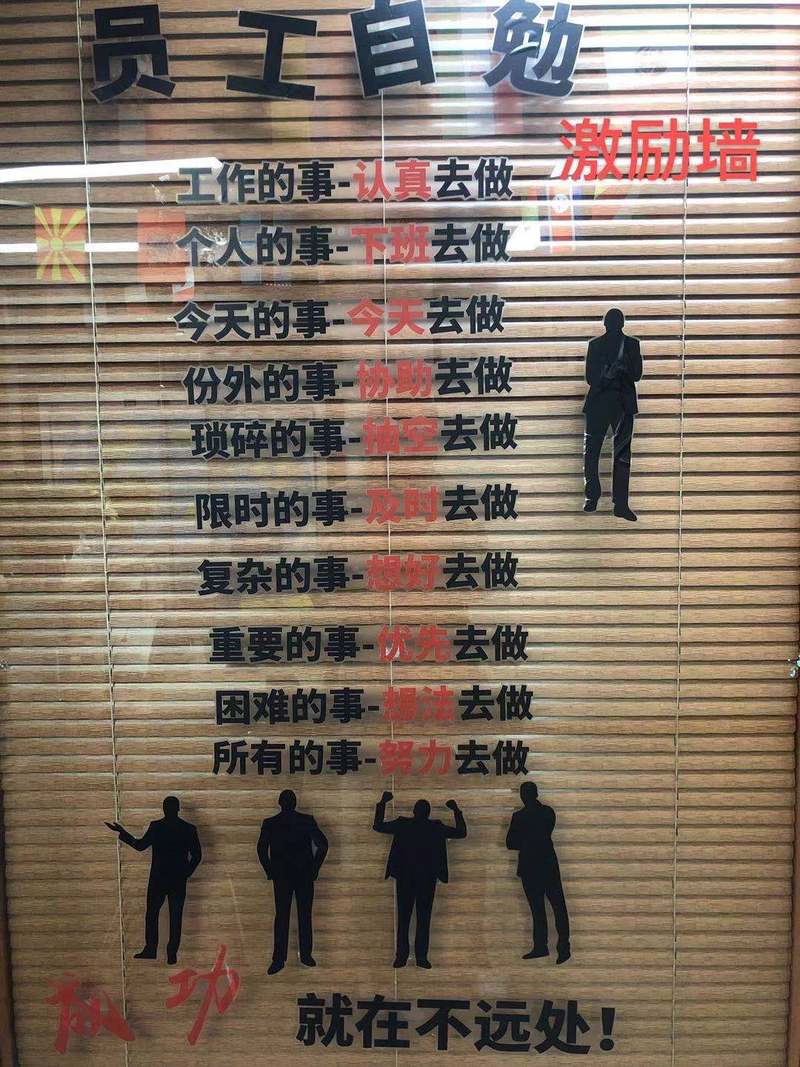 员工自勉
激励墙
工作的事-认真去做
个人的事-下班去做
今天的事-今天去做
份外的事-协助去做
琐碎的事-抽空去做
限时的事-及时去做
复杂的事-想好去做
重要的事-优先去做
困难的事-想法去做
所有的事-努力去做
成功
就在不远处！